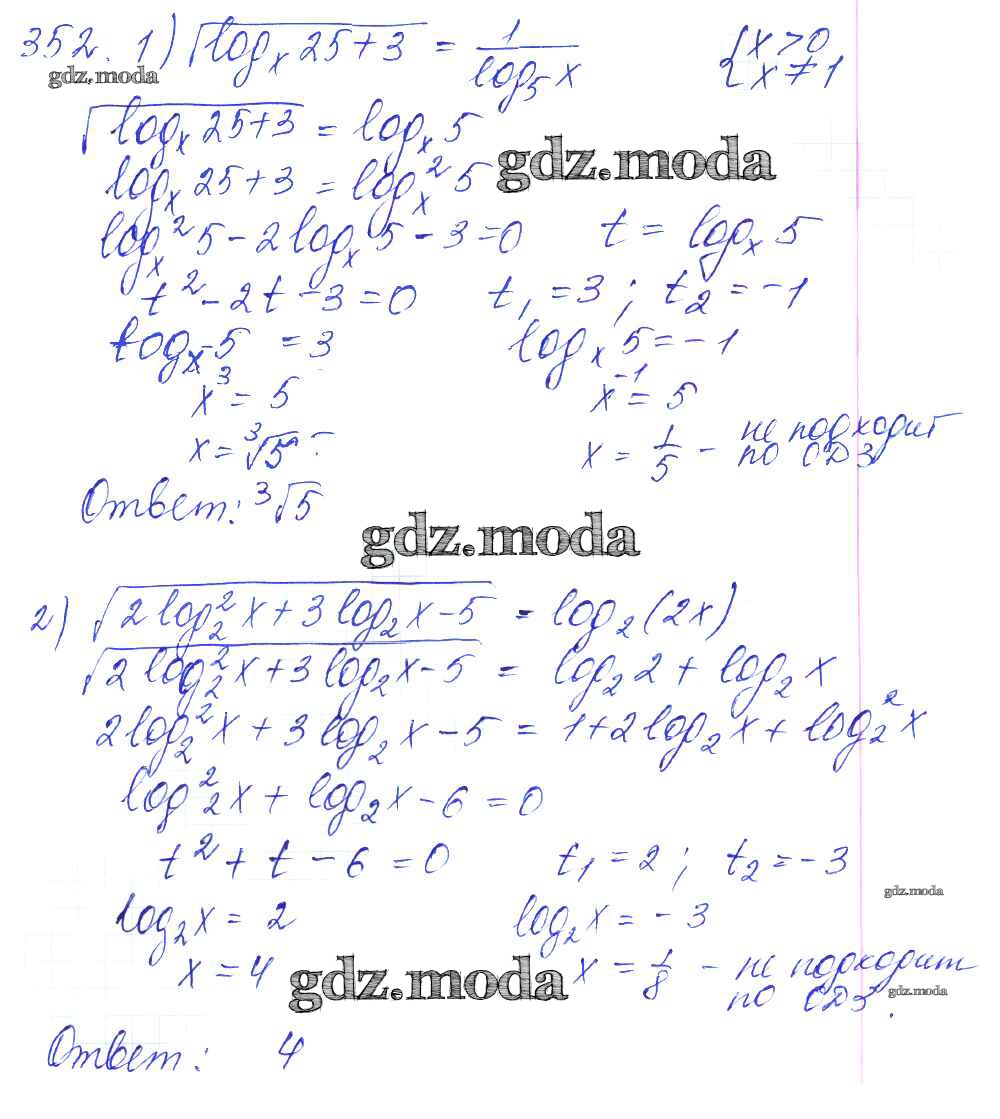 352. 1) √(log_x 25+3) = 1/(log_5 x) {x>0
x≠1
gdz.moda
√(log_x 25+3) = log_x 5
gdz.moda
log_x 25+3 = log_x² 5
log_x² 5 - 2 log_x 5 - 3 = 0 t = log_x 5
t² - 2t - 3 = 0 t₁ = 3 ; t₂ = -1
log_x 5 = 3 log_x 5 = -1
x³ = 5 x⁻¹ = 5
x = ³√5 x = 1/5 - не подходит
по ОДЗ
Ответ: ³√5
gdz.moda
2) √(2 log₂² x + 3 log₂ x - 5) = log₂(2x)
√(2 log₂² x + 3 log₂ x - 5) = log₂ 2 + log₂ x
2 log₂² x + 3 log₂ x - 5 = 1 + 2 log₂ x + log₂² x
log₂² x + log₂ x - 6 = 0
t² + t - 6 = 0 t₁ = 2 ; t₂ = -3
gdz.moda
log₂ x = 2 log₂ x = -3
x = 4 x = 1/8 - не подходит
gdz.moda
по ОДЗ.
gdz.moda
Ответ: 4